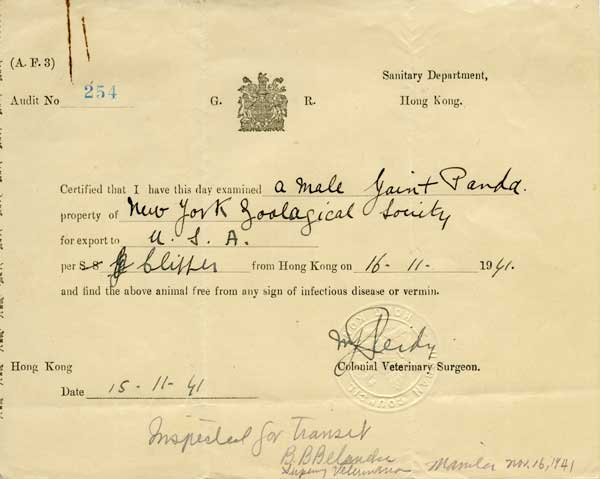 (A. F. 3)
Sanitary Department,
Audit No 254
G. R.
Hong Kong.
Certified that I have this day examined a male Gaint Panda.
property of New York Zoological Society
for export to U. S. A.
per S S Clipper from Hong Kong on 16 - 11 - 1941.
and find the above animal free from any sign of infectious disease or vermin.
Hong Kong
Colonial Veterinary Surgeon.
Date 15 - 11 - 41
Inspected for Transit
Manila Nov. 16, 1941